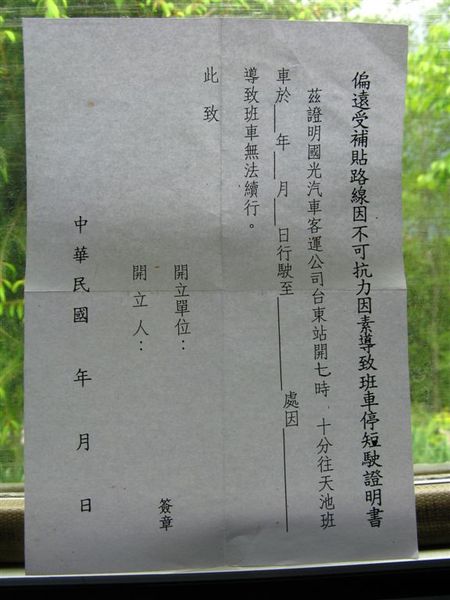 偏遠受補貼路線因不可抗力因素導致班車停短駛證明書
茲證明國光汽車客運公司台東站開七時 十分往天池班
車於＿年＿月＿日行駛至＿＿＿＿處因＿＿＿＿
導致班車無法續行。
此致
開立單位：
開立人：
簽章
中華民國 年 月 日